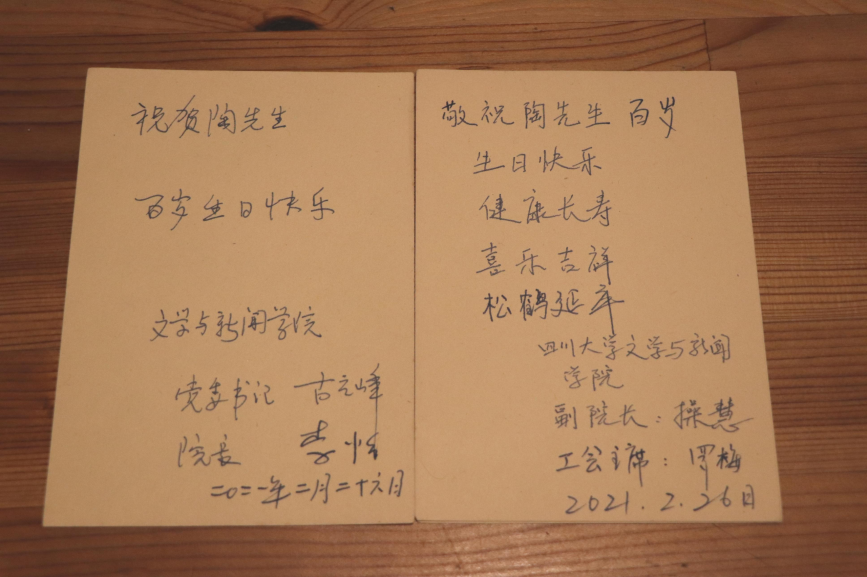 祝贺陶先生
百岁生日快乐
文学与新闻学院
党委书记 古立峰
院长 李怡
二〇二一年二月二十六日
敬祝陶先生 百岁
生日快乐
健康长寿
喜乐吉祥
松鹤延年
四川大学文学与新闻
学院
副院长：操慧
工会主席：罗梅
2021.2.26日